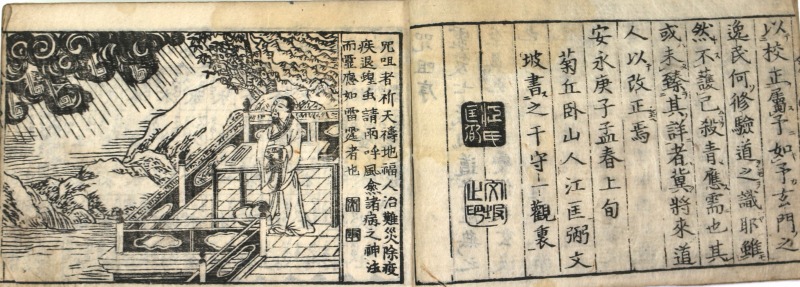 以校正屬予如予玄門之
逸民何修驗道之識耶雖
然不獲已殺青應需也其
或未臻其詳者冀將來道
人以改正焉
安永庚子孟春上旬
菊丘臥山人江匡弼文
坡書之千守一觀裏
江氏匡弼
文坡之印
呪咀者祈天禱地福人難災除疫
疾退蝗虫請雨呼風愈諸病之神法
而靈應如雷霆者也